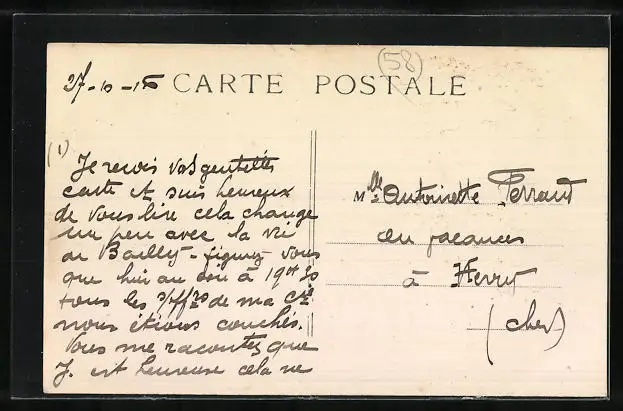 (58)
27-10-16 CARTE POSTALE
(1)
Je reçois vos gentilles
carte et suis heureux
de vous lire cela change
un peu avec la vie
de Bailly - figurez vous
que hier au soir à 19h30
tous les s/offrs de ma Cie
nous étions couchés.
Vous me racontez que
J. est heureuse cela ne
Mlle Antoinette Perraud
en vacances
à Herry
(Cher)